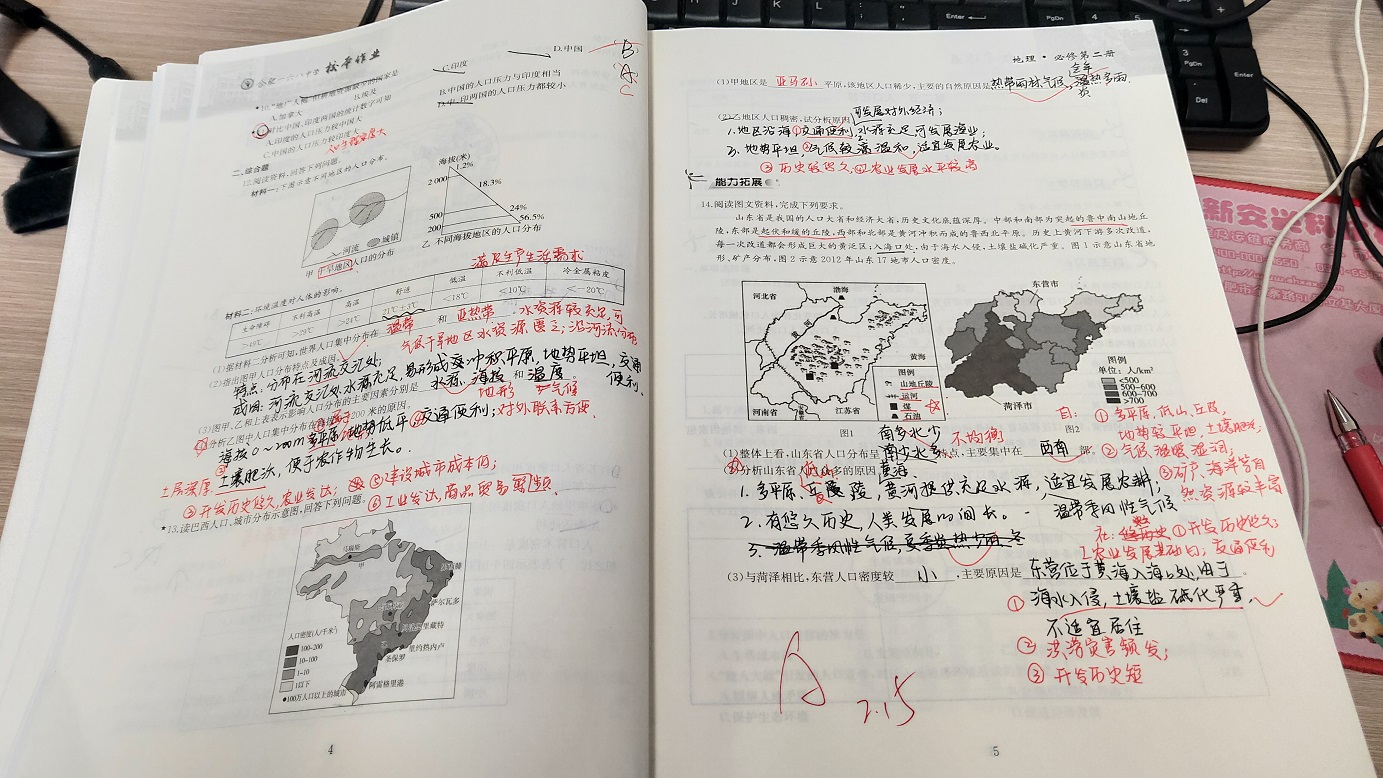 合肥一六八中学 校本作业
D.中国
B
C.印度
A
C
A.加拿大
B.埃及
B.中国的人口压力与印度相当
A.印度的人口压力较中国大
C.中国的人口压力较印度大
D.中、印两国的人口压力都较小
二、综合题
12.阅读资料,回答下列问题。
材料一:下图示意不同地区的人口分布。
河流
城镇
甲 干旱地区人口的分布
海拔(米)
1.2%
2 000
18.3%
500
24%
200
56.5%
乙 不同海拔地区的人口分布
满足生产生活需求
材料二:环境温度对人体的影响。
生命障碍
不利高温
高温
舒适
低温
不利低温
冷金属粘度
>29℃
>24℃
<18℃
≤10℃
<-20℃
(1)据材料二分析可知,世界人口集中分布在 温带 和 亚热带
水资源较充足,可
气候干旱地区水资源匮乏;沿河流分布
(2)指出图甲人口分布特点及成因。
特点:分布在河流交汇处;
成因:河流交汇处水源充足,易形成冲积平原,地势平坦,交通便利。
(3)图甲、乙和上表表示影响人口分布的主要因素分别是 水源、海拔 和 温度。
地形 气候
(4)分析乙图中人口集中分布在海拔低于200米的原因。
④交通便利;对外联系方便.
海拔0~200m多平原,地势低平
土层深厚.土壤肥沃,便于农作物生长。
⑤建设城市成本低;
③开发历史悠久,农业发达;
⑥工业发达,商品贸易
★13.读巴西人口、城市分布示意图,回答下列问题。
马瑙斯
甲
萨尔瓦多
里约热内卢
圣保罗
阿雷格里港
人口密度(人/千米²)
100-200
10-100
1-10
1以下
●100万人口以上的城市
4
地理·必修第二册
(1)甲地区是 亚马孙 平原,该地区人口稀少,主要的自然原因是热带雨林气候,湿热多雨.
全年
(2)乙地区人口稠密,试分析原因。
可发展对外经济;
1.地区沿海①交通便利,水源充足河发展渔业;
3.地势平坦,②气候较温和,适宜发展农业。
③历史较悠久,④农业发展水平较高
能力拓展
14.阅读图文资料,完成下列要求。
山东省是我国的人口大省和经济大省,历史文化底蕴深厚。中部和南部为突起的鲁中南山地丘
陵,东部是起伏和缓的丘陵,西部和北部是黄河冲积而成的鲁西北平原。历史上黄河下游多次改道,
每一次改道都会形成巨大的黄泛区;入海口处,由于海水入侵,土壤盐碱化严重。图1示意山东省地
形、矿产分布,图2示意2012年山东17地市人口密度。
河北省
渤海
黄河
黄海
河南省
江苏省
图例
山地丘陵
运河
煤
石油
图1
东营市
菏泽市
图例
单位:人/km²
<500
500~600
600~700
>700
图2
自: ①多平原,低山,丘陵,
地势较平坦,土壤肥沃;
②气候温暖湿润;
③矿产、海洋等自
然资源较丰富
南多北少
不均衡
(1)整体上看,山东省人口分布呈 特点,主要集中在 西南 部。
(2)分析山东省人口多的原因。
1.多平原、丘陵,黄河提供充足水源,适宜发展农耕;
2.有悠久历史,人类发展时间长。
温带季风性气候
社: ①开发历史悠久;
工农业发展基础好;交通便利
(3)与菏泽相比,东营人口密度较 小 ,主要原因是 东营位于黄海入海口处,由于
①海水入侵,土壤盐碱化严重,
不适宜居住
②洪涝灾害频发;
③开发历史短
A
2.15
5
Enter
PgDn
Del